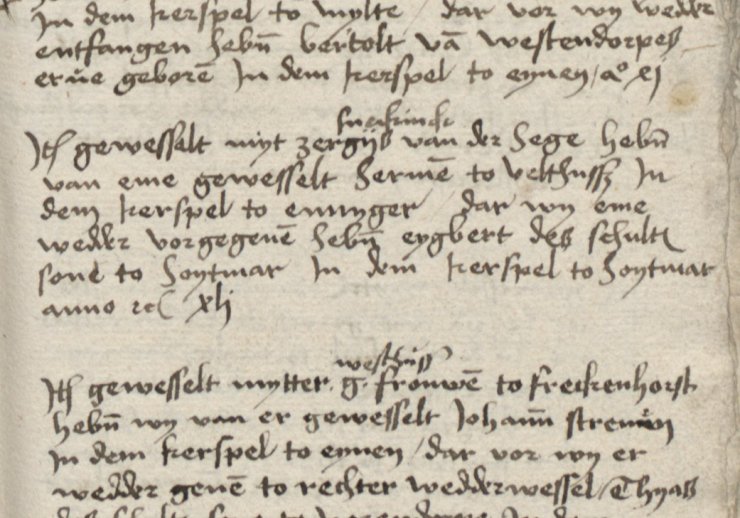 In dem kerspel to mylte / dar vor wy wedder
entfangen hebn̄ bertolt vā westendorpes
erue geborē In dem kerspel to eynen / aº xj
Itē gewesselt myt zergyes van der hege hebn̄
van eme gewesselt hermē to velthusz In
dem kerspel to ennyger dar wy eme
wedder vorgegeuē hebn̄ eygbert des schultē
sone to hoytmar In dem kerspel to hoytmar
anno xlj
westhuss
Itē gewesselt mytter g. frouwē to freckenhorst
hebn̄ wy van er gewesselt Johann
In dem kerspel to eynen / dar vor wy er
wedder geuē to rechter wedderwessel / Thyas